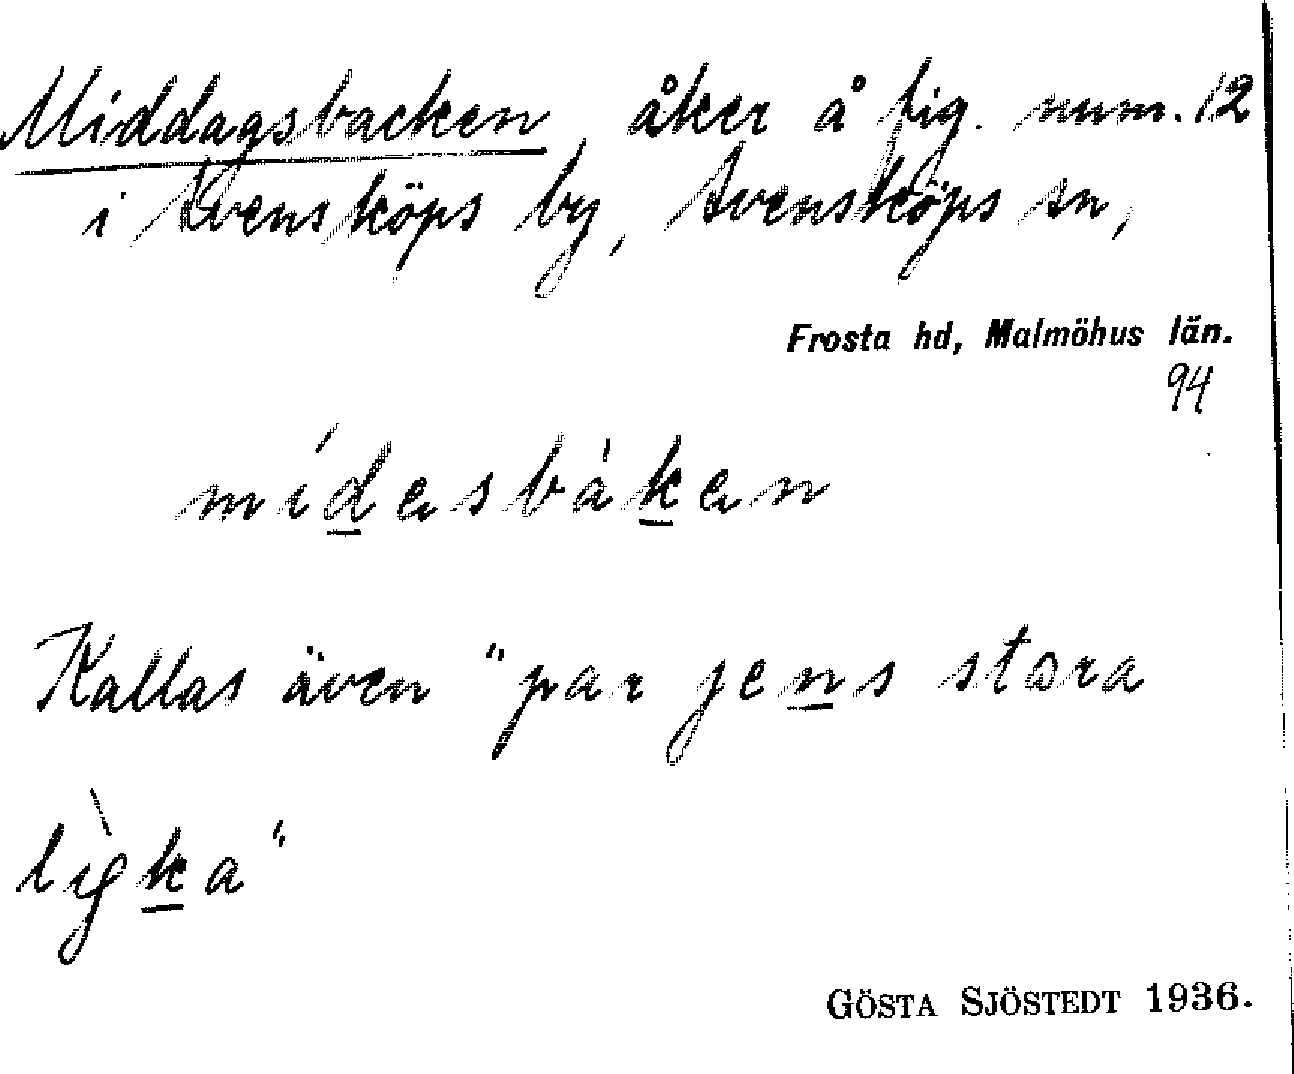 Middagsbacken, åker å fig. num. 12
i Svensköps by, Svensköps sn,
Frosta hd, Malmöhus län.
94
mídasbàkan
Kallas även "par jens stora
lyka"
GÖSTA SJÖSTEDT 1936.